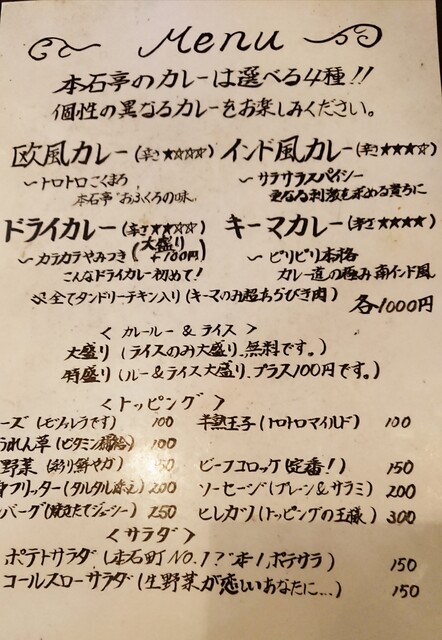 Menu
本石亭のカレーは選べる4種!!
個性の異なるカレーをお楽しみください。
欧風カレー(辛さ★☆☆☆) インド風カレー(辛さ★★★☆)
〜トロトロこくまろ 〜サラサラスパイシー
本石亭“おふくろの味、 更なる刺激を求める貴方に
ドライカレー(辛さ★☆☆☆) キーマカレー(辛さ★★★★)
〜カラカラやみつき(大盛り+100円) 〜ピリピリ本格
こんなドライカレー初めて! カレー道の極み南インド風
※全てタンドリーチキン入り(キーマのみ超あらびき肉) 各1000円
<カレールー&ライス>
大盛り(ライスのみ大盛り、無料です。)
特盛り(ルー&ライス大盛り、プラス100円です。)
<トッピング>
ーズ(モツァレラです) 100 半熟玉子(トロトロマイルド) 100
うれん草(ビタミン補給) 100
野菜(彩り鮮やか) 150 ビーフコロッケ(定番!) 150
フリッター(タルタル添え) 200 ソーセージ(プレーン&サラミ) 200
バーグ(焼きたてジューシー) 250 ヒレカツ(トッピングの王様) 300
<サラダ>
ポテトサラダ(本石町NO.1?“本1,ポテサラ) 150
コールスローサラダ(生野菜が恋しいあなたに…) 150